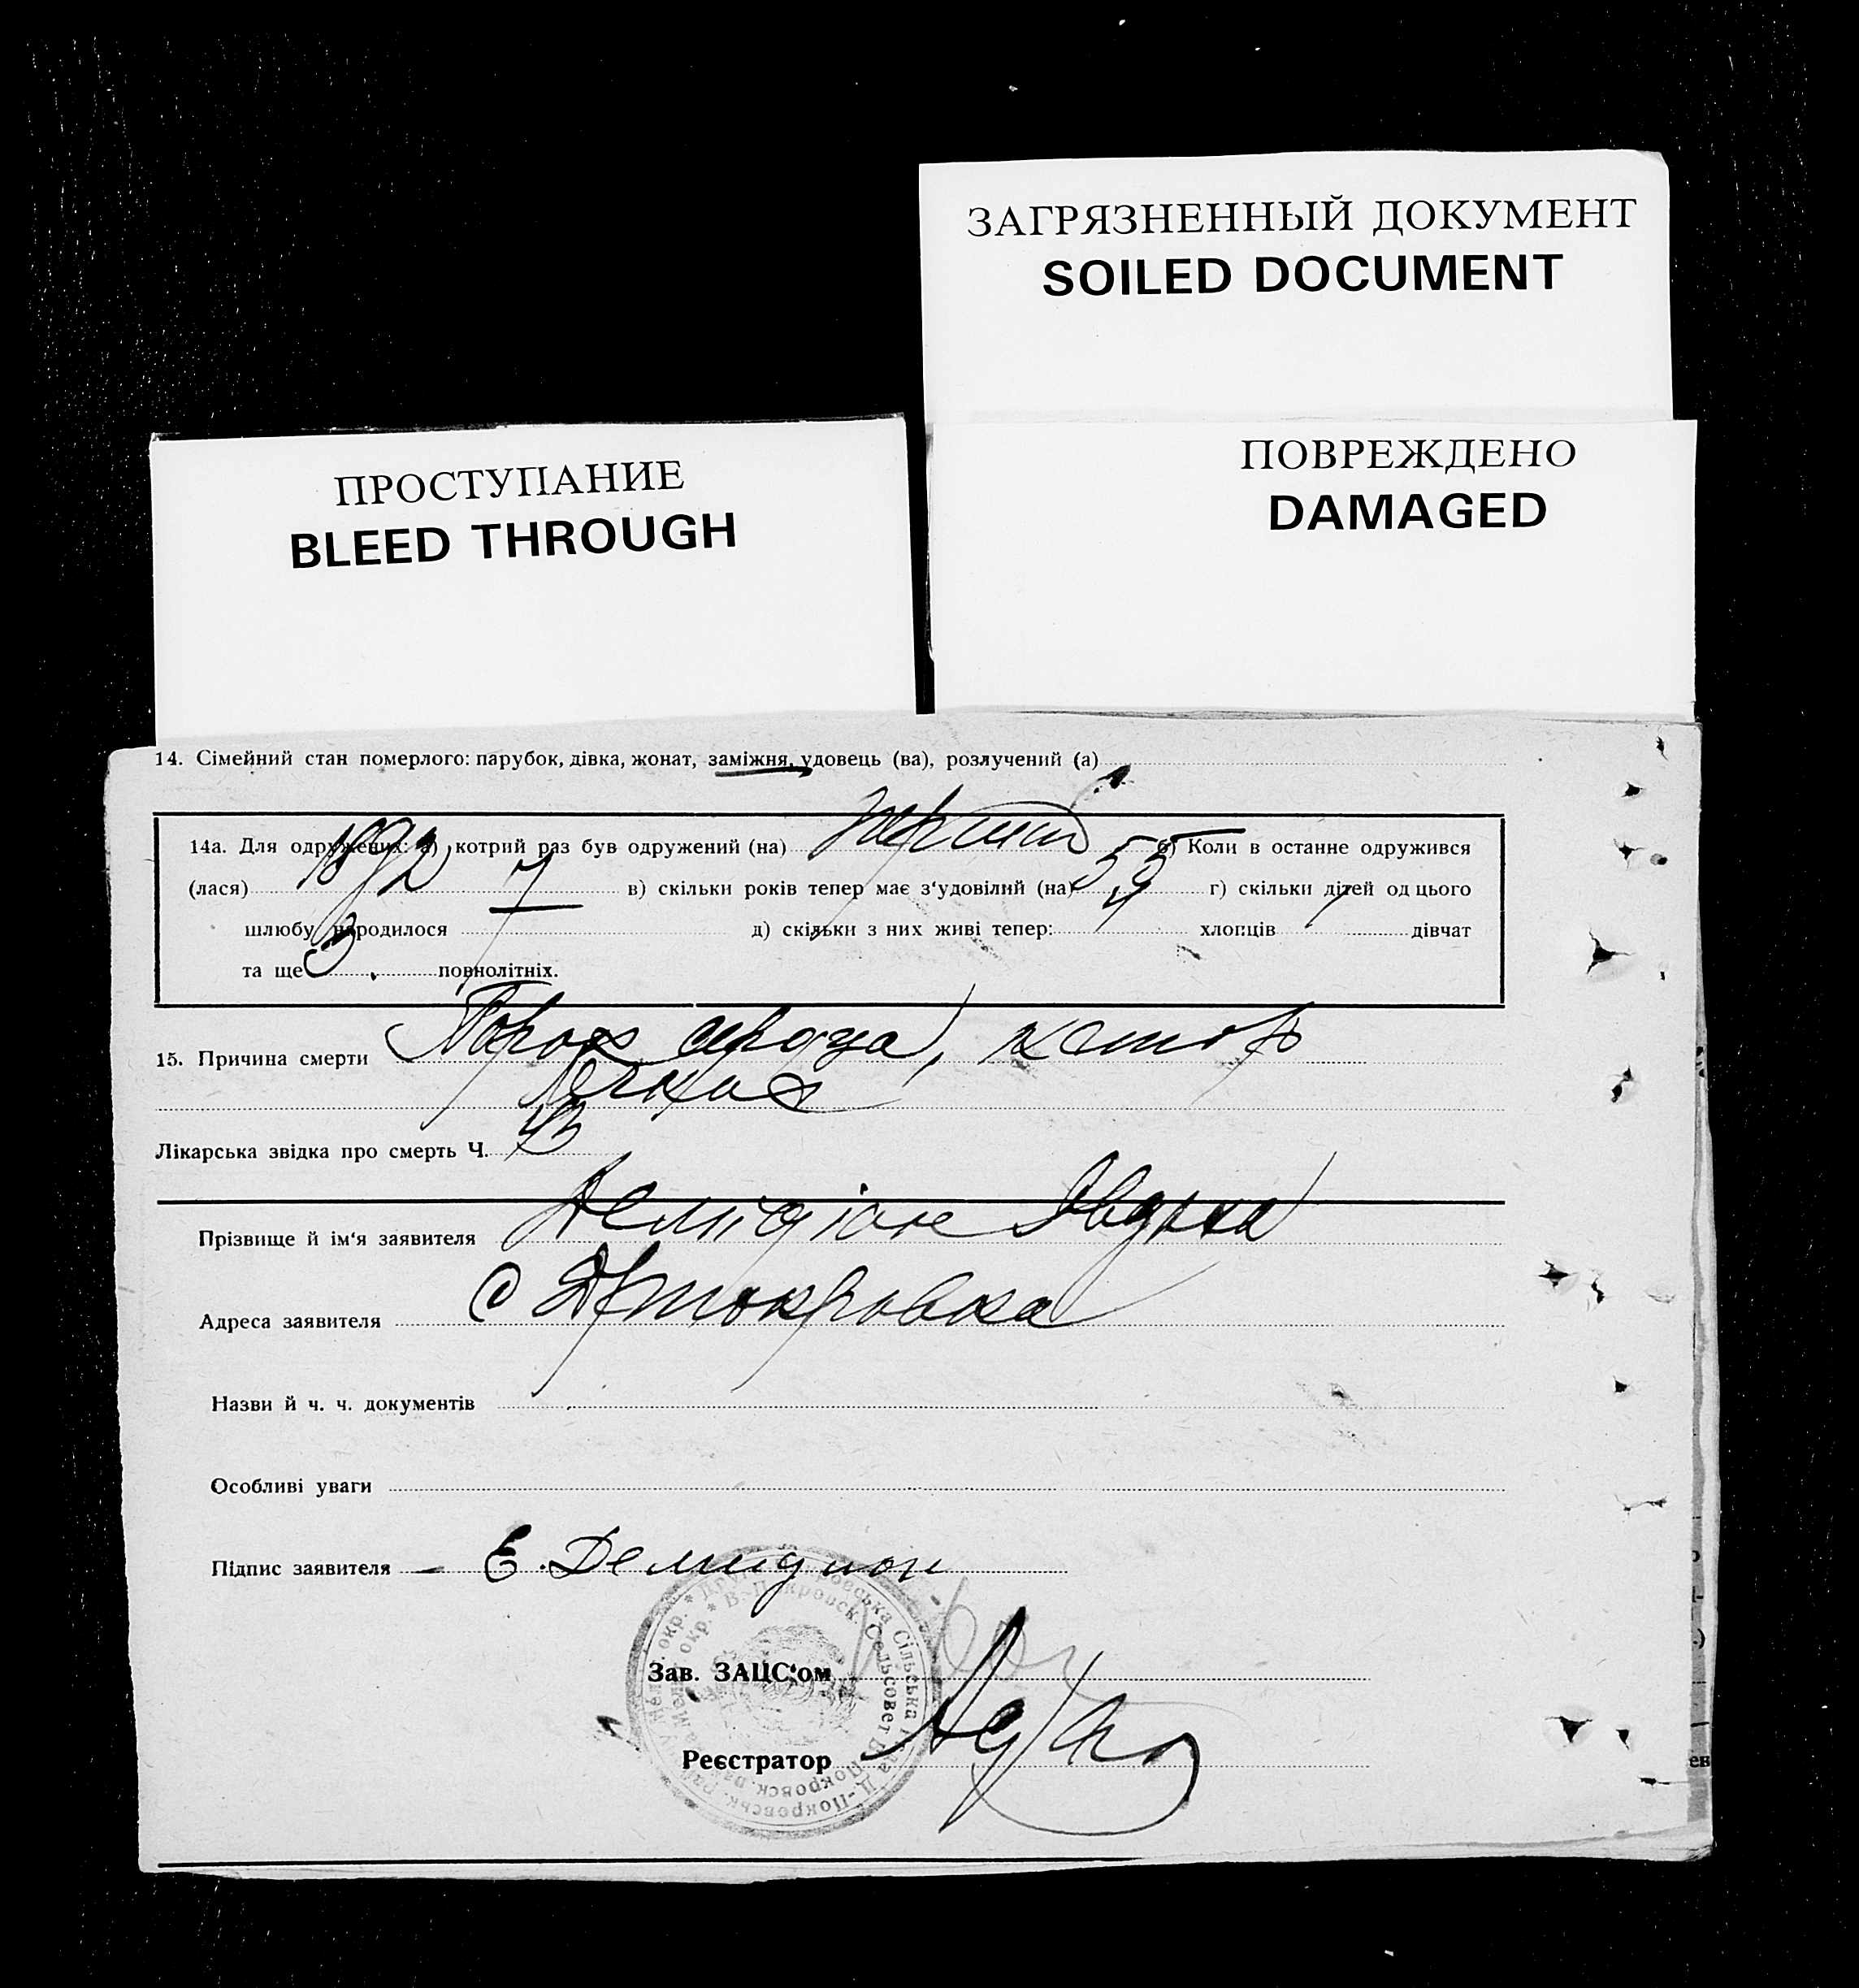 ЗАГРЯЗНЕННЫЙ ДОКУМЕНТ
SOILED DOCUMENT
ПРОСТУПАНИЕ
BLEED THROUGH
ПОВРЕЖДЕНО
DAMAGED
14. Сімейний стан померлого: парубок, дівка, жонат, заміжня, удовець (ва), розлучений (а)
14а. Для одружених: а) котрий раз був одружений (на) первий б) Коли в останне одружився
(лася) 1892 в) скільки років тепер має з'удовілий (на) 55 г) скільки дітей од цього
шлюбу народилося 7 д) скільки з них живі тепер: хлопців дівчат
та ще 3 повнолітніх.
15. Причина смерти Порок сердца,
Легких
Лікарська звідка про смерть Ч.
Прізвище й ім'я заявителя Демідіон
Адреса заявителя с
Назви й ч. ч. документів
Особливі уваги
Підпис заявителя – Е. Демидион
Зав. ЗАЦС'ом
Реєстратор